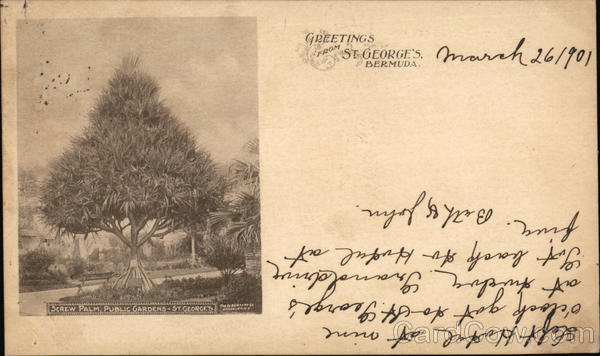 GREETINGS
FROM
ST. GEORGE'S,
BERMUDA.
March 26/901
Left Hotel at nine
o'clock got to St. George's
at twelve, Grand drive
Got back to Hotel at
five. Beth & John.
SCREW PALM, PUBLIC GARDENS - ST. GEORGE'S.
CardCow.com